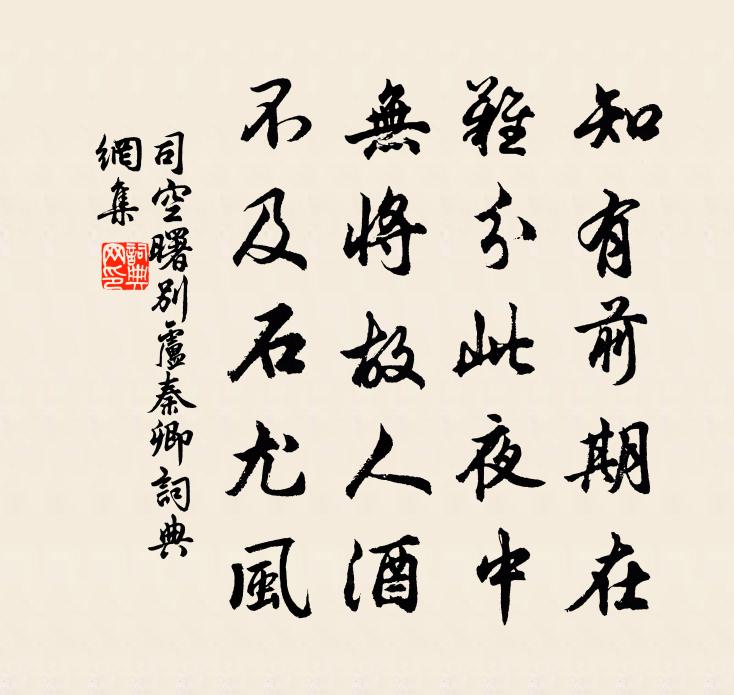 知有前期在
難分此夜中
無將故人酒
不及石尤風
司空曙別盧秦卿詞典
網集
詞典網印